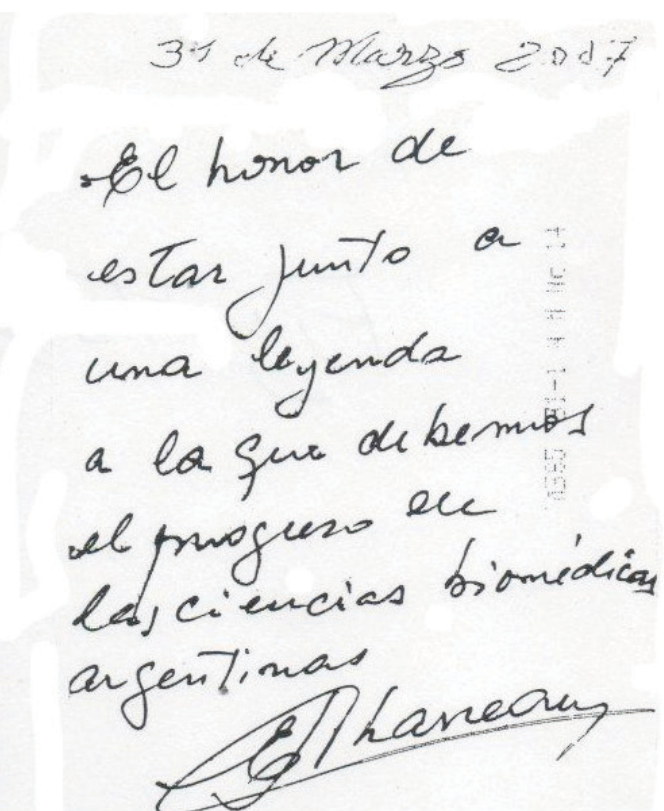 31 de Marzo 2007
El honor de
estar junto a
una leyenda
a la que debemos
el progreso en
las ciencias biomédicas
argentinas